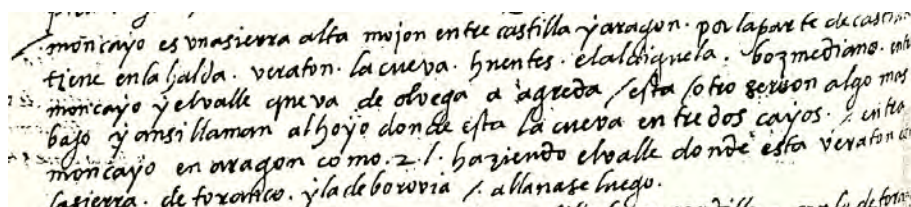 moncayo es vna sierra alta mojon entre castilla y aragon. por la parte de casti
tiene en la halda. veraton. la cueva. huentes. el aldiguela. bozmediano. entre
moncayo y el valle que va de olvega a agreda / esta / otro serron algo mas
bajo y ansi llaman al hoyo donde esta la cueva entre dos cayos. / entra
moncayo en aragon como. 2 l. haziendo el valle donde esta veraton
la sierra. de toranco. y la de borovia / allanase luego.